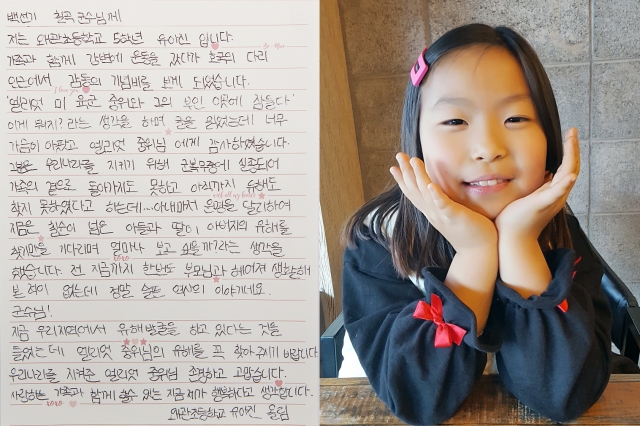 백선기 칠곡 군수님께
저는 왜관초등학교 5학년 유아진 입니다.
가족과 함께 강변에 운동을 갔다가 호국의 다리
인근에서 감동의 기념비를 보게 되었습니다.
'엘리엇 미 육군 중위와 그의 부인 이곳에 잠들다'
이게 뭐지? 라는 생각을 하며 글을 읽었는데 너무
가슴이 아팠고 엘리엇 중위님 에게 감사하였습니다.
그분은 우리나라를 지키기 위해 군복무중에 실종되어
가족의 곁으로 돌아가지도 못하고 아직까지 유해도
찾지 못하였다고 하는데...아내마저 운명을 달리하여
지금은 환순이 넘은 아들과 딸이 아버지의 유해를
찾기만을 기다리며 얼마나 보고 싶을까? 라는 생각을
했습니다. 전 지금까지 한번도 부모님과 헤어져 생활해
본 적이 없는데 정말 슬픈 역사의 이야기네요.
군수님!
지금 우리지역에서 유해발굴을 하고 있다는 것을
들었는데 엘리엇 중위님의 유해를 꼭 찾아 주시기 바랍니다.
우리나라를 지켜준 엘리엇 중위님 존경하고 고맙습니다.
사랑하는 가족과 함께 할수 있는 지금 제가 행복하다고 생각합니다.
왜관초등학교 유아진 올림